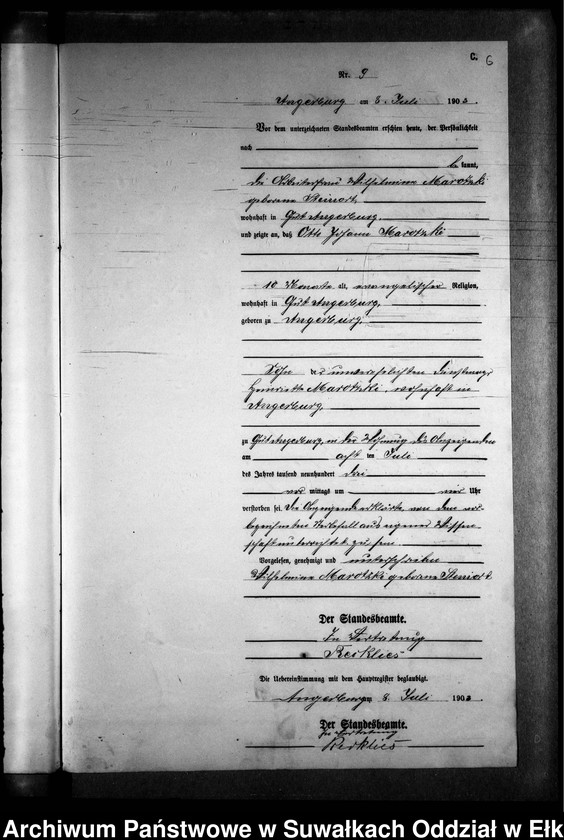 C.
6
Nr. 9
Angerburg am 8. Juli 1903.
Vor dem unterzeichneten Standesbeamten erschien heute, der Persönlichkeit
nach
be kannt,
die Arbeiterfrau Wilhelmine Marotzki
geborene Steinort,
wohnhaft in Gut Angerburg,
und zeigte an, daß Otto Johann Marotzki
10 Monate alt, evangelischer Religion,
wohnhaft in Gut Angerburg,
geboren zu Angerburg,
Sohn der unverehelichten
Henriette Marotzki, wohnhaft in
Angerburg
zu Gut Angerburg, in der Wohnung des Anzeigenden
am acht ten Juli
des Jahres tausend neunhundert drei
vor mittags um vier Uhr
verstorben sei. Die Anzeigende erklärte, von dem vor
bezeichneten Sterbefall aus eigener Wissen
schaft unterrichtet zu sein.
Vorgelesen, genehmigt und unterschrieben
Wilhelmine Marotzki geborene
Der Standesbeamte.
In Vertretung
Reiklies
Die Uebereinstimmung mit dem Hauptregister beglaubigt.
Angerburg 8. Juli 1903.
Der Standesbeamte.
In Vertretung
Reiklies
Archiwum Państwowe w Suwałkach Oddział w Ełk